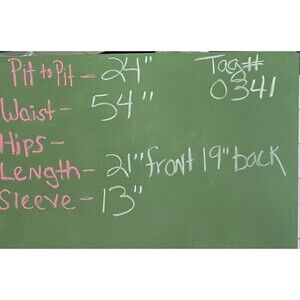 Pit to Pit - 24" Tag#
Waist - 54" 0341
Hips -
Length - 21" front 19" back
Sleeve - 13"